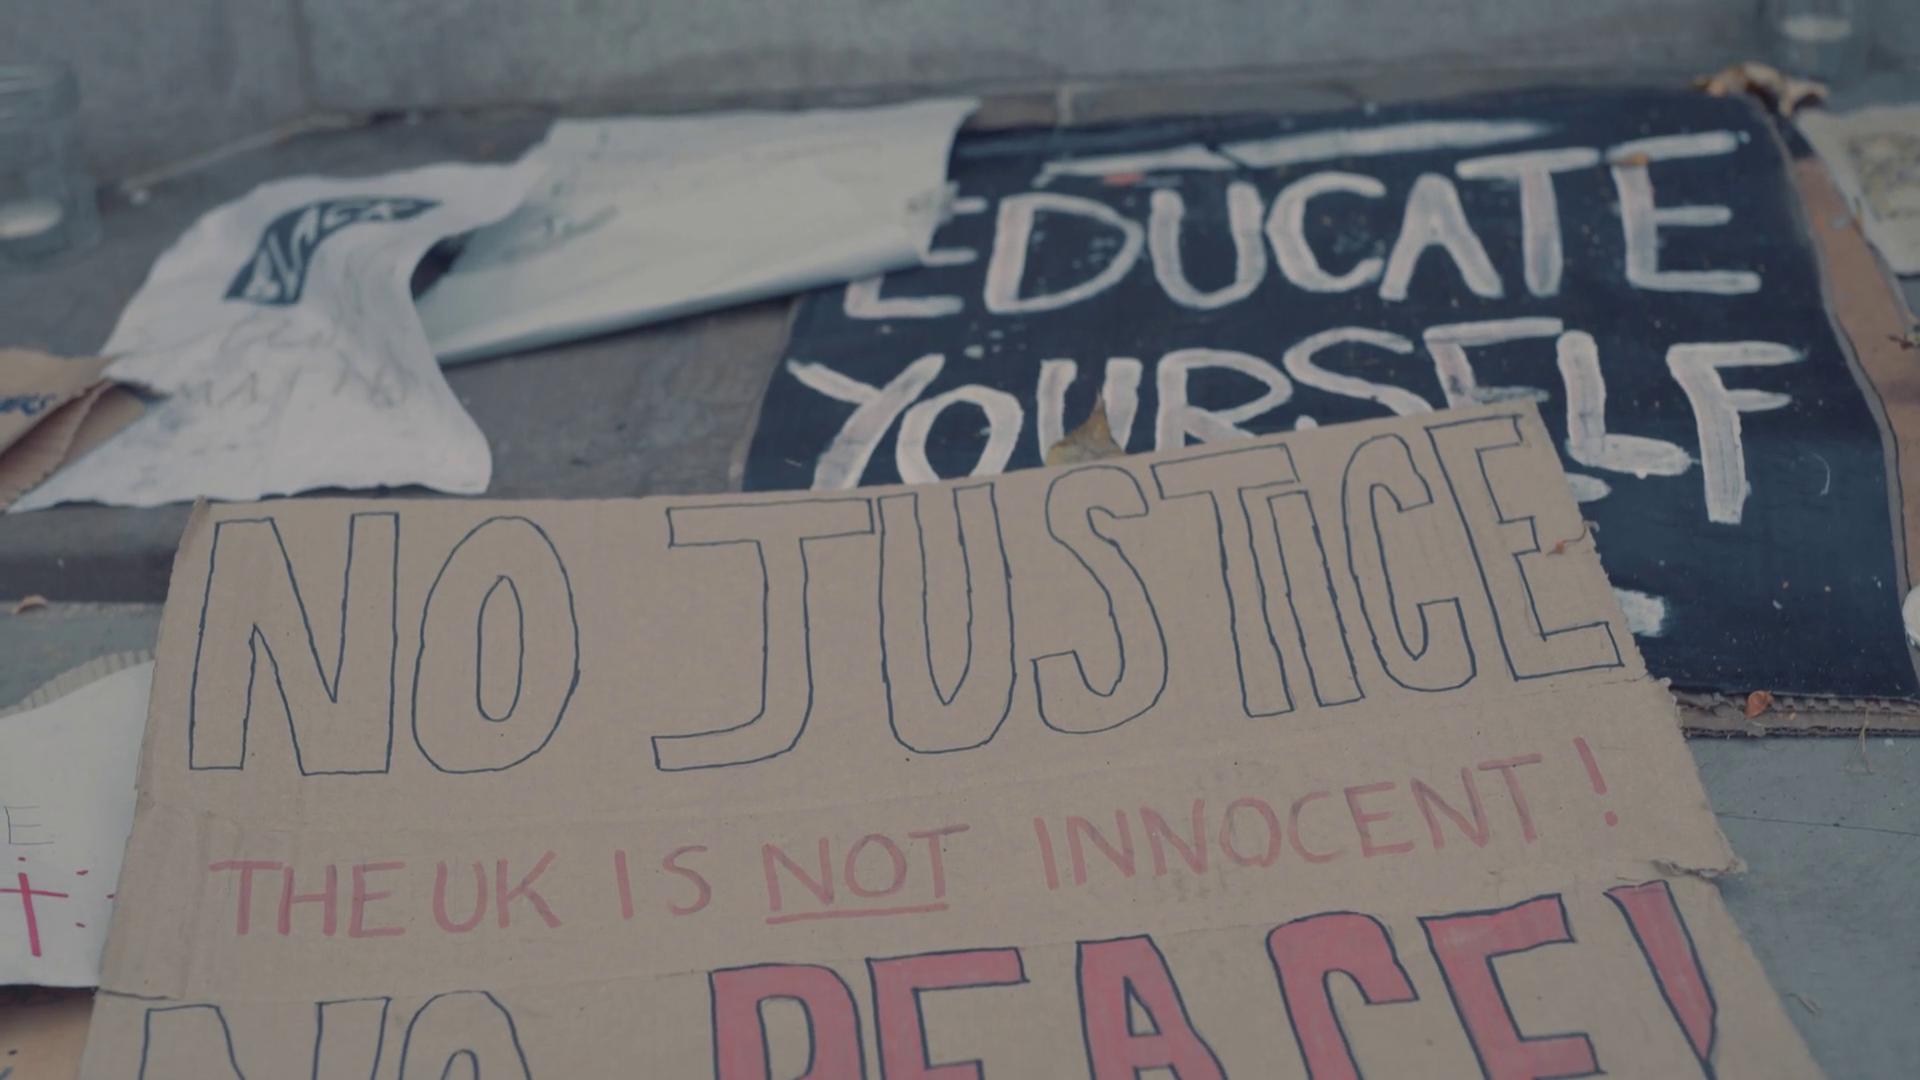 EDUCATE
YOURSELF
NO JUSTICE
THE UK IS NOT INNOCENT!
NO PEACE!
E